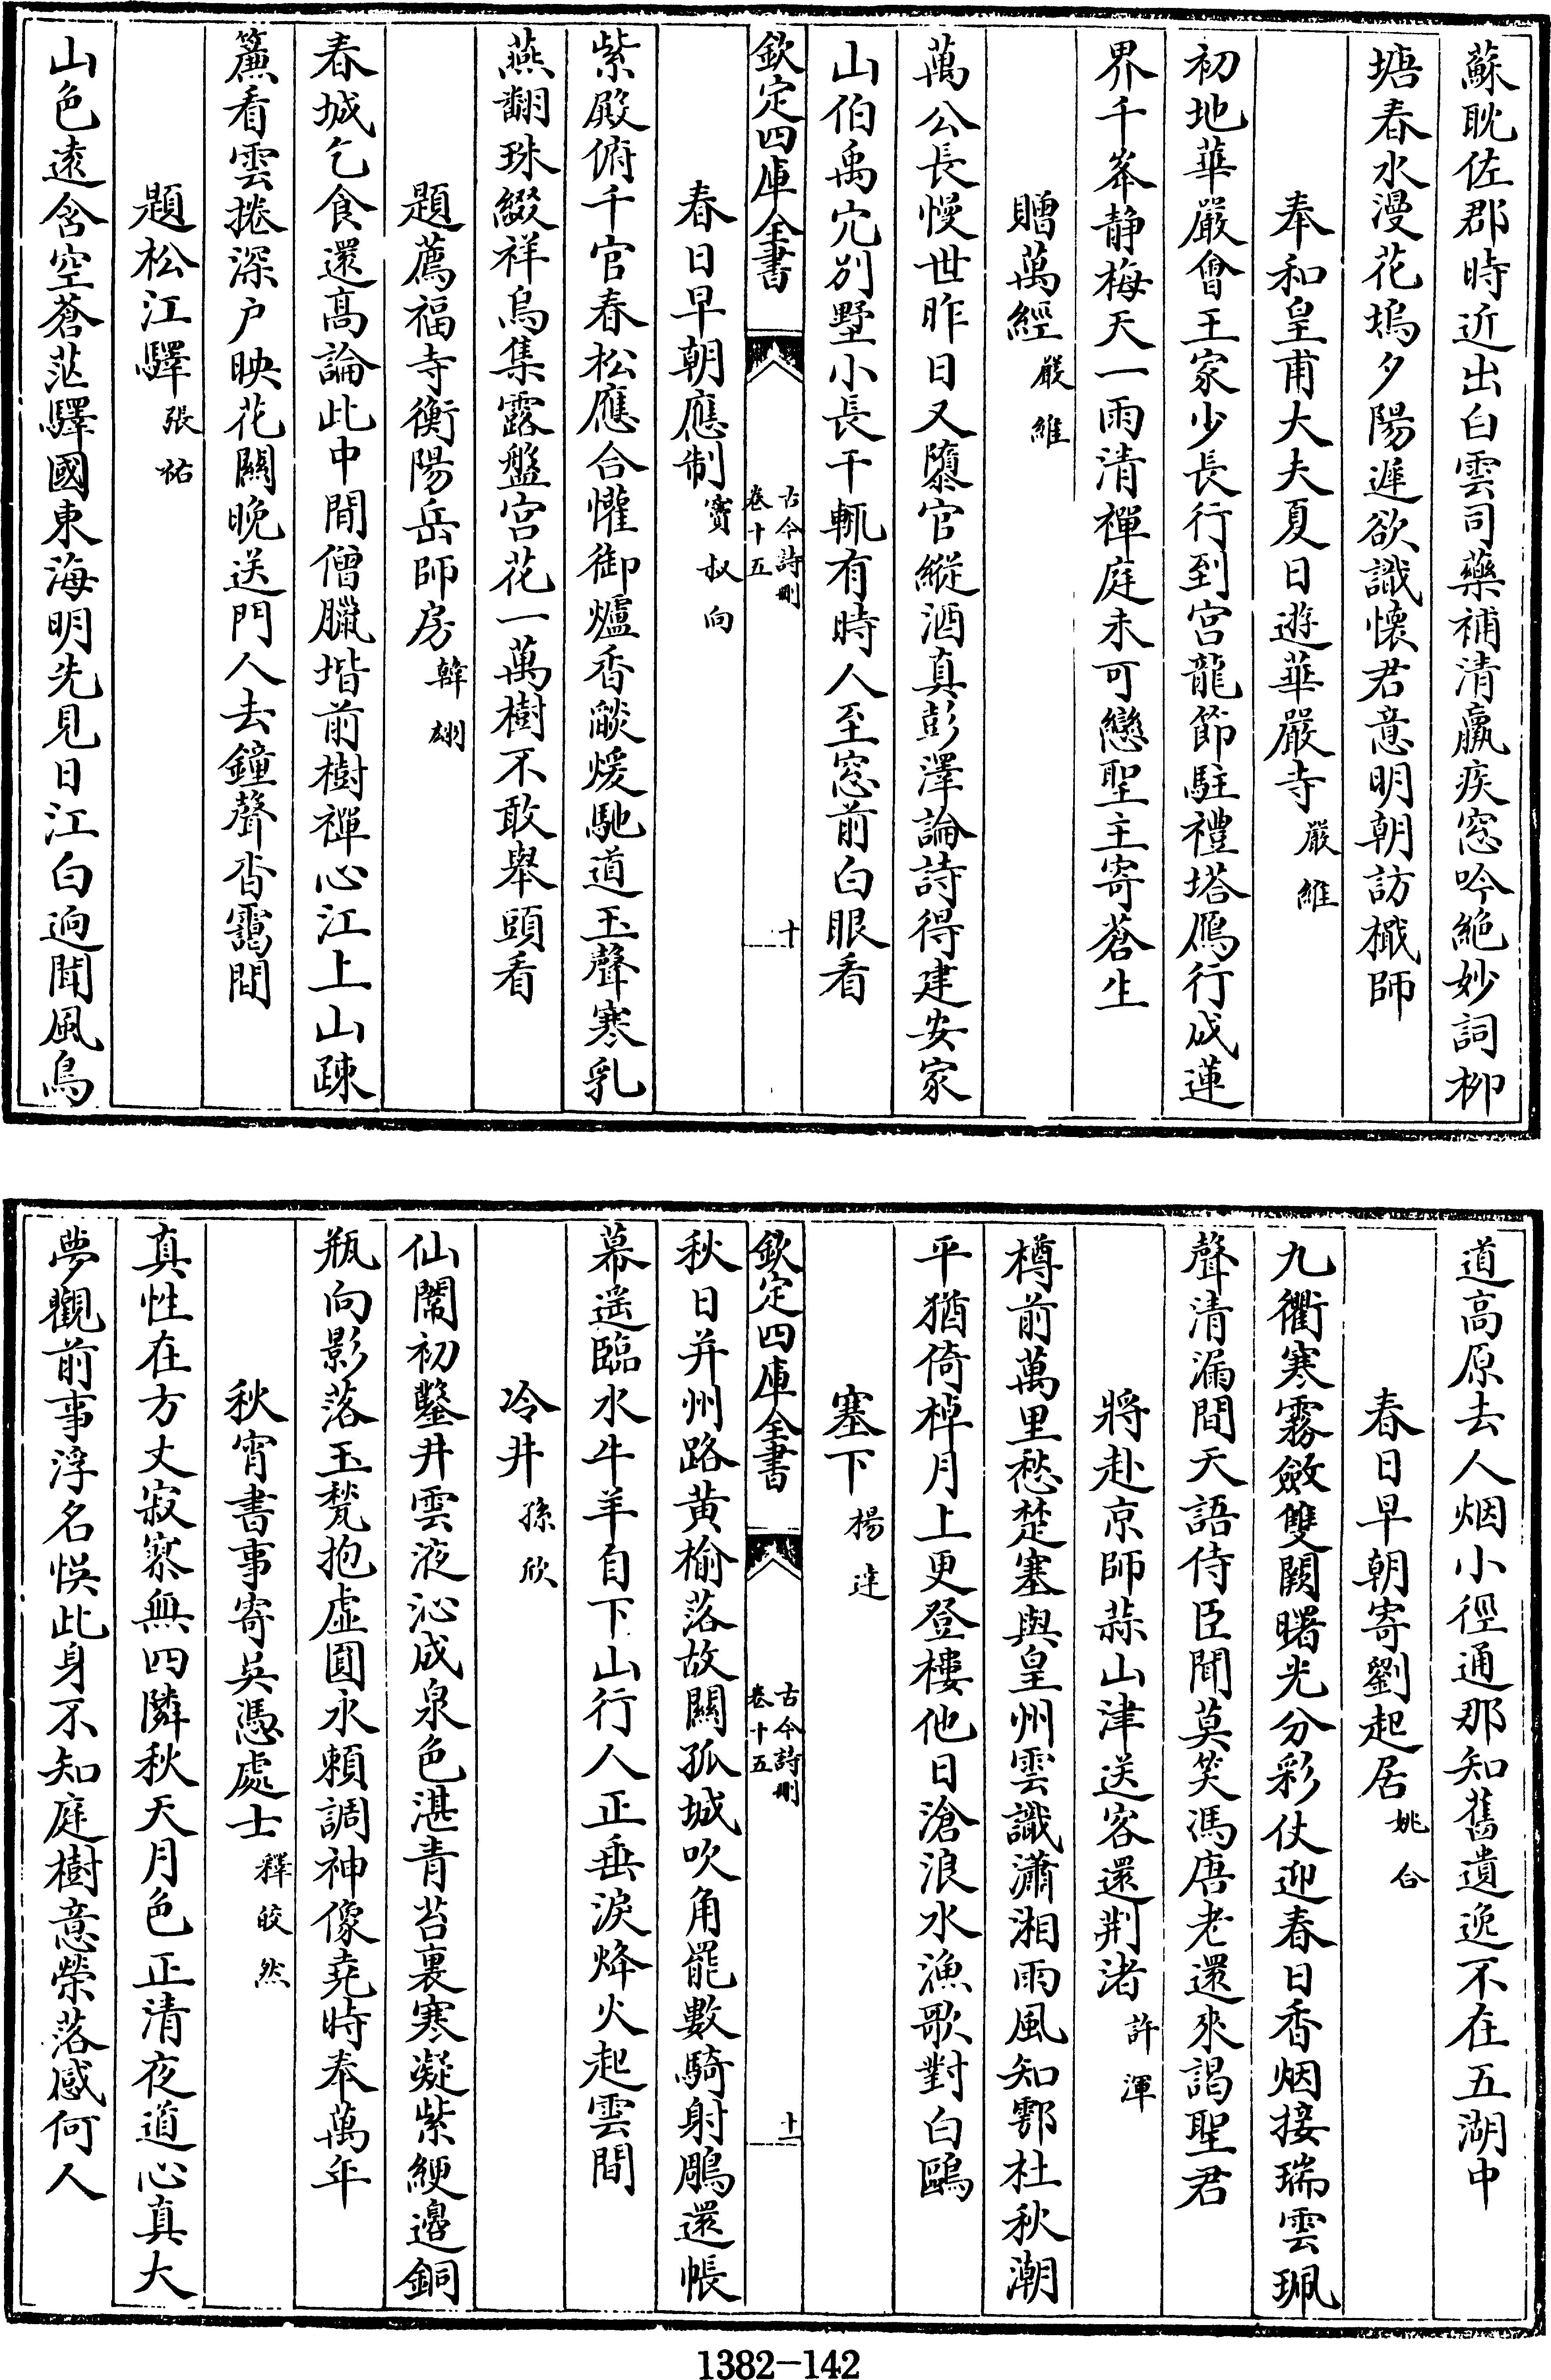 蘇耽佐郡時近出白雲司藥補清羸疾窓吟絶妙詞柳
塘春水漫花塢夕陽遲欲識懷君意明朝訪檝師
奉和皇甫大夫夏日遊華嚴寺 嚴維
初地華嚴會王家少長行到宫龍節駐禮塔鴈行成蓮
界千峯静梅天一雨清禪庭未可戀聖主寄蒼生
贈萬經 嚴維
萬公長慢世昨日又隳官縱酒真彭澤論詩得建安家
山伯禹穴别墅小長干輒有時人至窓前白眼看
欽定四庫全書 古今詩刪 卷十五 十
春日早朝應制 竇叔向
紫殿俯千官春松應合懽御爐香燄煖馳道玉聲寒乳
燕翻珠綴祥烏集露盤宫花一萬樹不敢舉頭看
題薦福寺衡陽岳師房 韓翃
春城乞食還髙論此中閒僧臘堦前樹禪心江上山疎
簾看雲捲深户映花關晚送門人去鐘聲杳靄間
題松江驛 張祐
山色逺含空蒼茫驛國東海明先見日江白迥聞風鳥
道高原去人烟小徑通那知舊遺逸不在五湖中
春日早朝寄劉起居 姚合
九衢寒霧斂雙闕曙光分彩仗迎春日香烟接瑞雲珮
聲清漏間天語侍臣聞莫笑馮唐老還來謁聖君
將赴京師蒜山津送客還荆渚 許渾
樽前萬里愁楚塞與皇州雲識瀟湘雨風知鄠杜秋潮
平猶倚棹月上更登樓他日滄浪水漁歌對白鷗
塞下 楊達
欽定四庫全書 古今詩刪 卷十五 十一
秋日并州路黄榆落故關孤城吹角罷數騎射鵰還帳
幕遥臨水牛羊自下山行人正垂淚烽火起雲間
冷井 孫欣
仙闈初鑿井雲液沁成泉色湛青苔裏寒凝紫綆邊銅
瓶向影落玉甃抱虚圓永頼調神像堯時奉萬年
秋宵書事寄吳憑處士 釋皎然
真性在方丈寂寥無四隣秋天月色正清夜道心真大
夢觀前事浮名悞此身不知庭樹意榮落感何人
1382-142